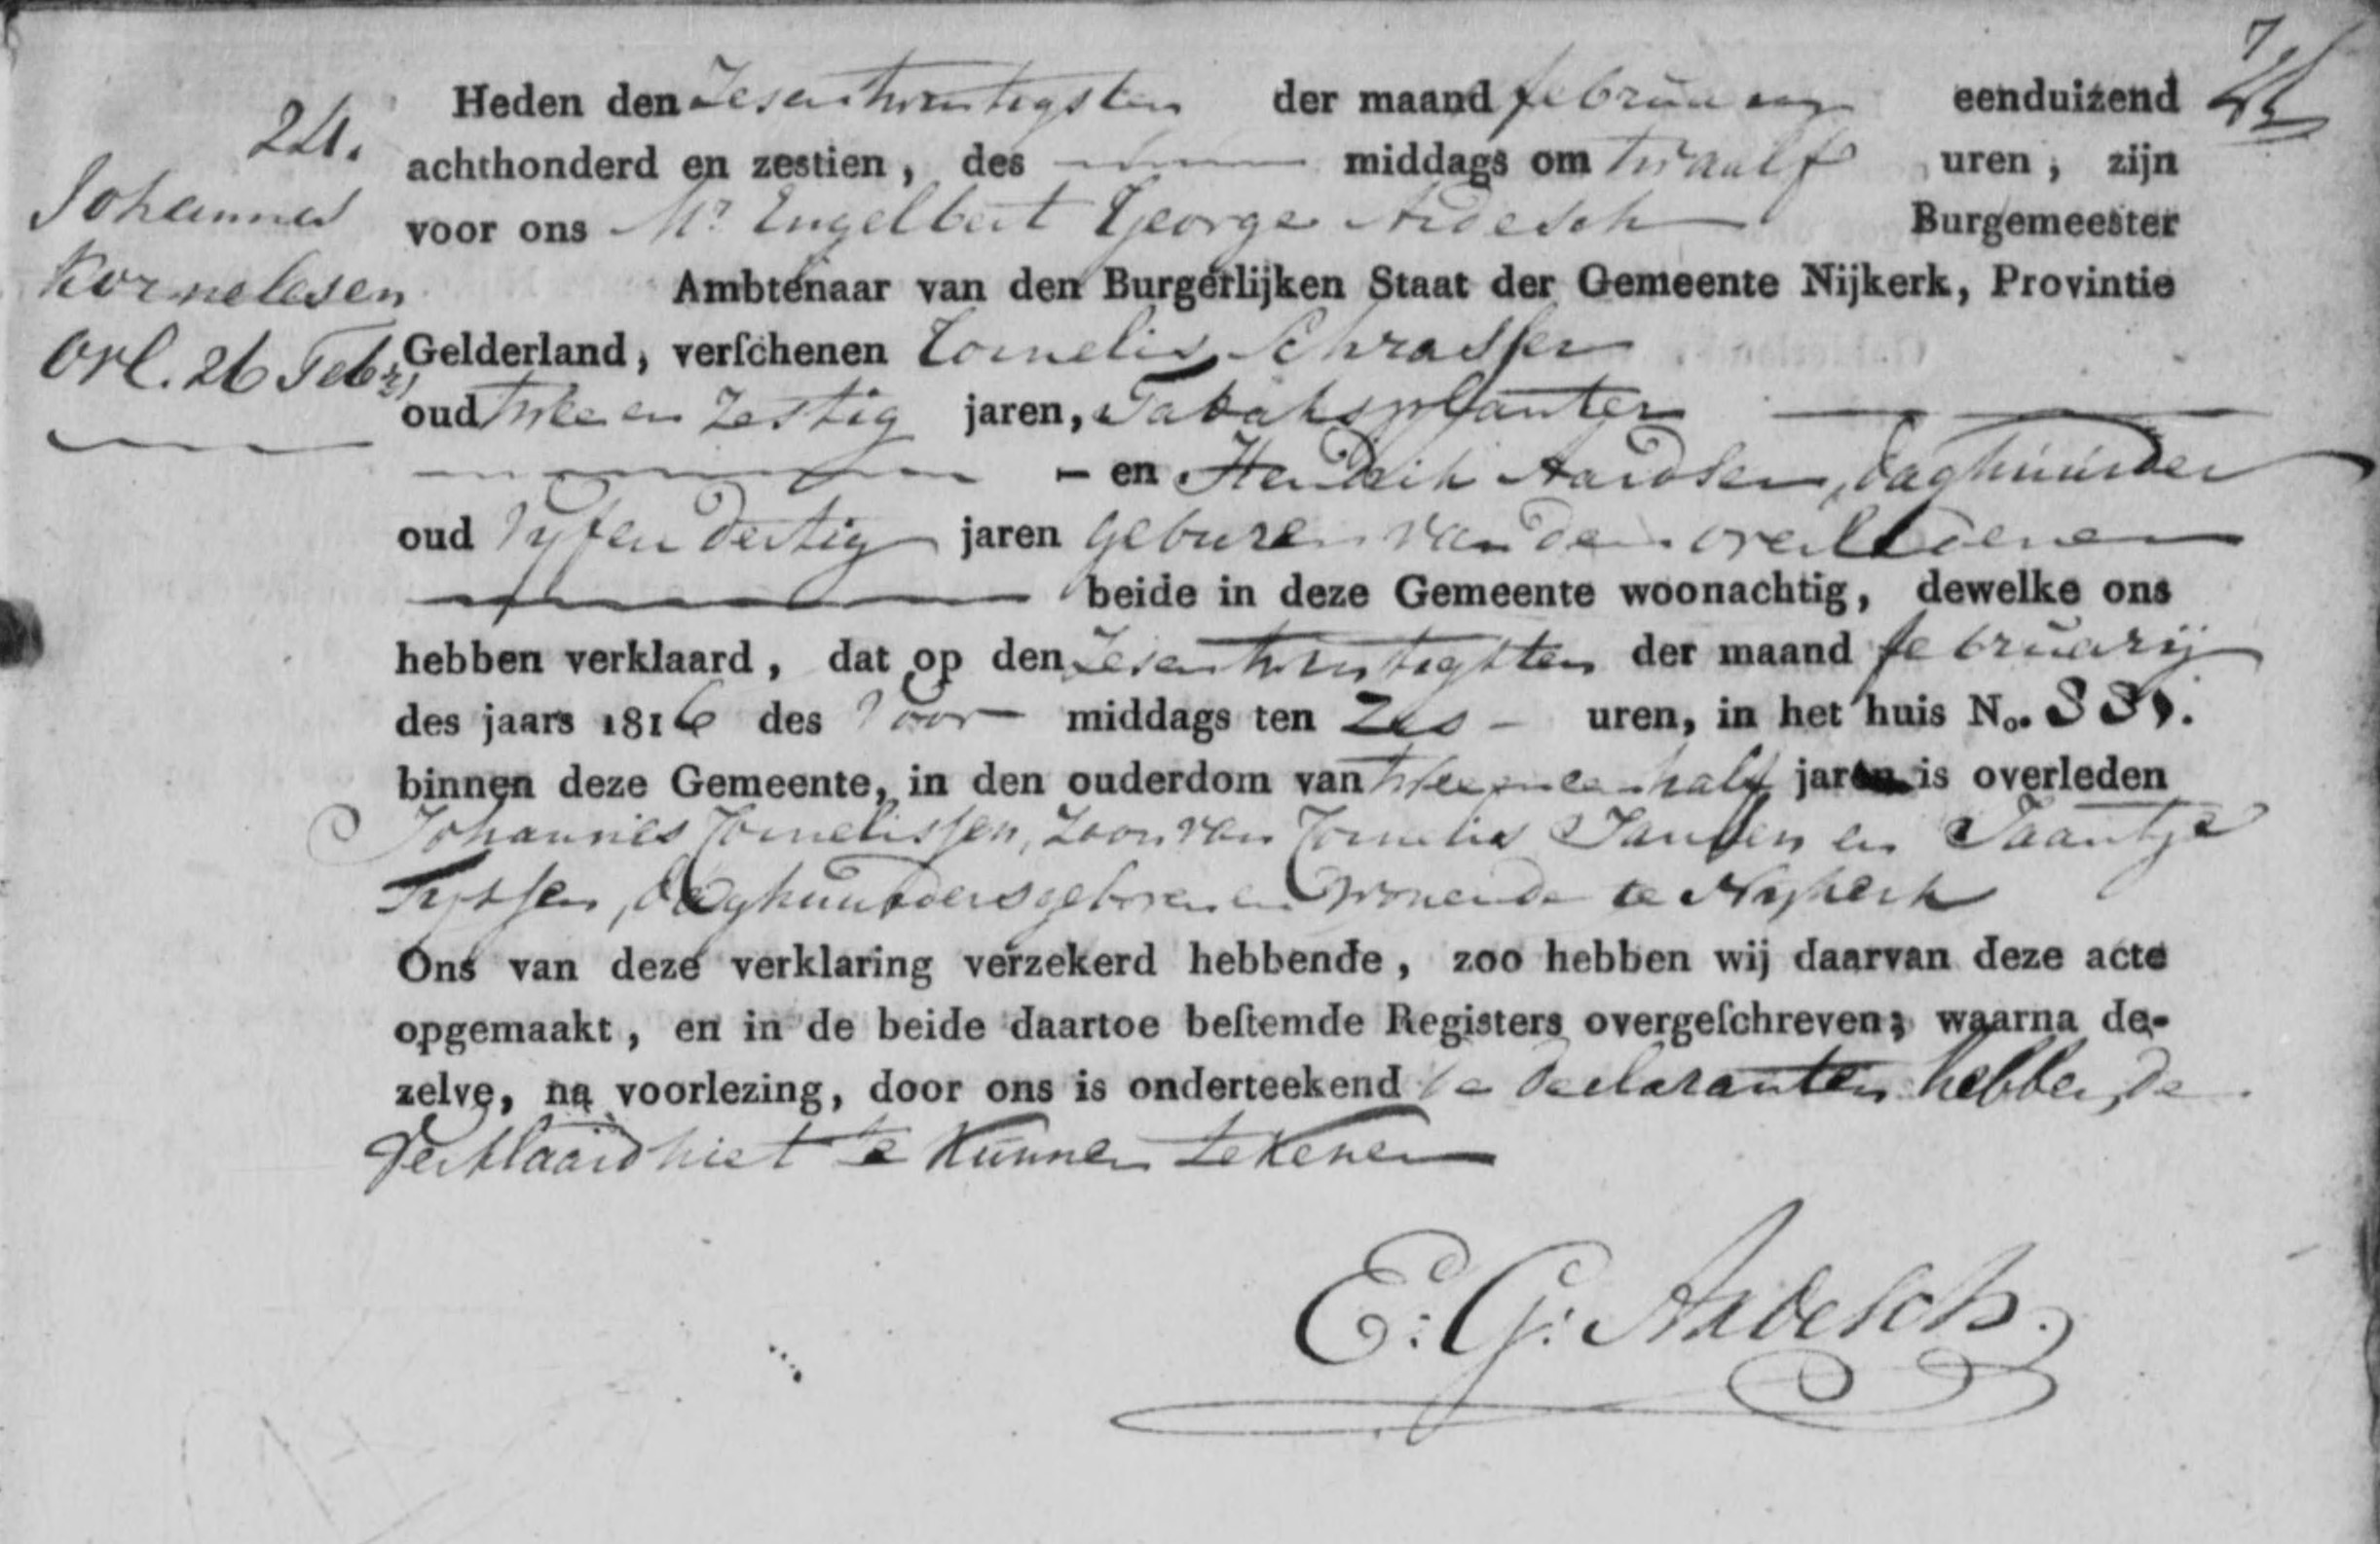 24.
Johannes
Kornelesen
Orl. 26 Feb.
Heden den Zesentwintigsten der maand februarij eenduizend
achthonderd en zestien, des middags om twaalf uren, zijn
voor ons Mr Engelbert George Ardesch Burgemeester
Ambtenaar van den Burgerlijken Staat der Gemeente Nijkerk, Provintie
Gelderland, verſchenen Cornelis Schrasser
oud twee en Zestig jaren, Tabaksplanter
- en Hendrik Aardsen, daghuurder
oud Vyfen dertig jaren geburen van den overledenen
beide in deze Gemeente woonachtig, dewelke ons
hebben verklaard, dat op den Zesentwintigsten der maand februarij
des jaars 1816 des Voor middags ten Zes - uren, in het huis No.
binnen deze Gemeente, in den ouderdom van twee en een half jaren is overleden
Johannes Cornelissen, Zoon van Cornelis Jansen en Jaantje
Tyssen, daghuurders geboren en wonende te Nykerk
Ons van deze verklaring verzekerd hebbende, zoo hebben wij daarvan deze acte
opgemaakt, en in de beide daartoe beſtemde Registers overgeſchreven; waarna de-
zelve, na voorlezing, door ons is onderteekend de declaranten hebbende
Verklaard niet te Kunnen tekenen
E: G: Ardesch.